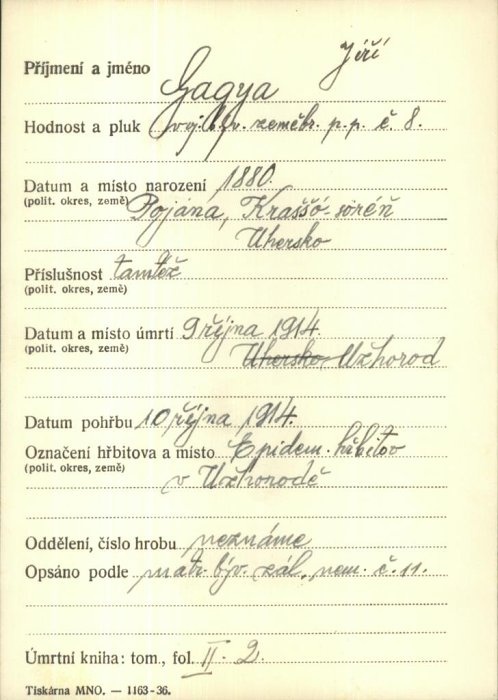 Příjmení a jméno Gagya Jiří
Hodnost a pluk voj. býv. zeměbr. p. p. č. 8.
Datum a místo narození 1880.
(polit. okres, země) Pojána, Kraššó-söréň
Uhersko
Příslušnost tamtéž
(polit. okres, země)
Datum a místo úmrtí 9 října 1914.
(polit. okres, země) Uhersko Užhorod
Datum pohřbu 10 října 1914.
Označení hřbitova a místo Epidem. hřbitov
(polit. okres, země) v Užhorodě
Oddělení, číslo hrobu neznáme
Opsáno podle matr. býv. zál. nem. č. 11.
Úmrtní kniha: tom., fol. II - 2.
Tiskárna MNO. — 1163-36.